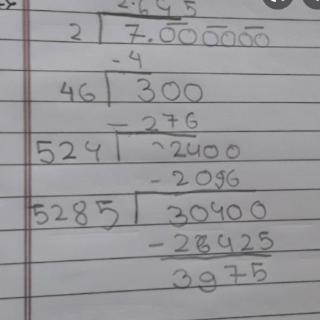 2.645
2 7.000000
-4
46 300
-276
524 2400
-2096
5285 30400
-26425
3975